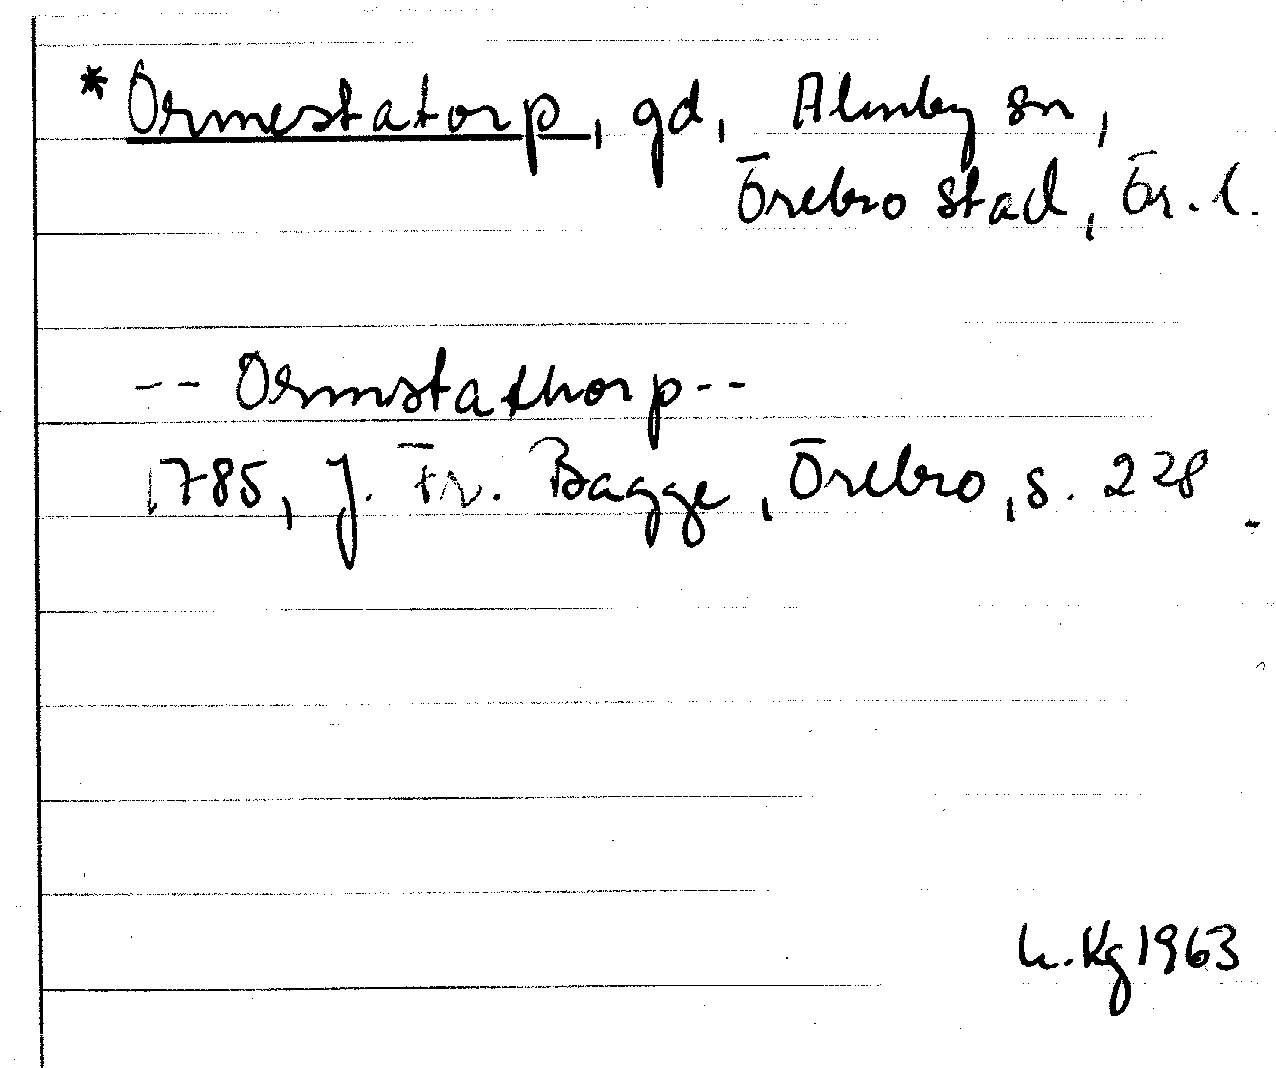 * Ormestatorp, gd, Almby sn,
Örebro stad, Ör. l.
-- Ormstathorp--
1785, J. Fr. Bagge, Örebro, s. 228.
L. Kg 1963